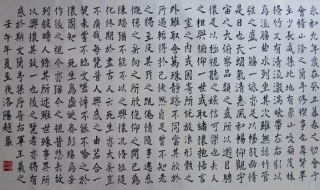 永和九年歲在癸丑暮春之初會于
會稽山陰之蘭亭脩禊事也羣賢畢
至少長咸集此地有崇山峻領茂林
脩竹又有清流激湍暎帶左右引以
為流觴曲水列坐其次雖無絲竹管
弦之盛一觴一詠亦足以暢叙幽情
是日也天朗氣清惠風和暢仰觀宇宙
之大俯察品類之盛所以遊目騁
懷足以極視聽之娛信可樂也夫人
之相與俯仰一世或取諸懷抱悟言
一室之內或因寄所託放浪形骸之
外雖取舍萬殊靜躁不同當其欣
於所遇蹔得於己快然自足曾不知老
之將至及其所之既惓情隨事遷感
慨係之矣向之所欣俛仰之間已為
陳跡猶不能不以之興懷況脩短隨
化終期於盡古人云死生亦大矣豈不
痛哉每攬昔人興感之由若合一契
未嘗不臨文嗟悼不能喻之於
懷固知一死生為虛誕齊彭殤為妄
作後之視今亦由今之視昔悲夫故
列叙時人錄其所述雖世殊事異所
以興懷其致一也後之攬者亦將有
感於斯文 蘭亭序 王羲之
壬午年夏至夜洛陽趙